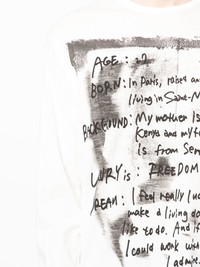 AGE: 27
BORN: In Paris, raised an
living in Saint-M
BACKGROUND: My mother Is
Kenya and my f
Is from Sen
LUXURY is: FREEDOM
DREAM: I feel really luc
make a living do
like to do. And if
I could work with
I admire.